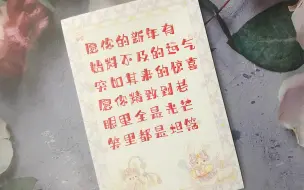 愿你的新年有
始料不及的运气
突如其来的惊喜
愿你精致到老
眼里全是光芒
笑里都是坦荡